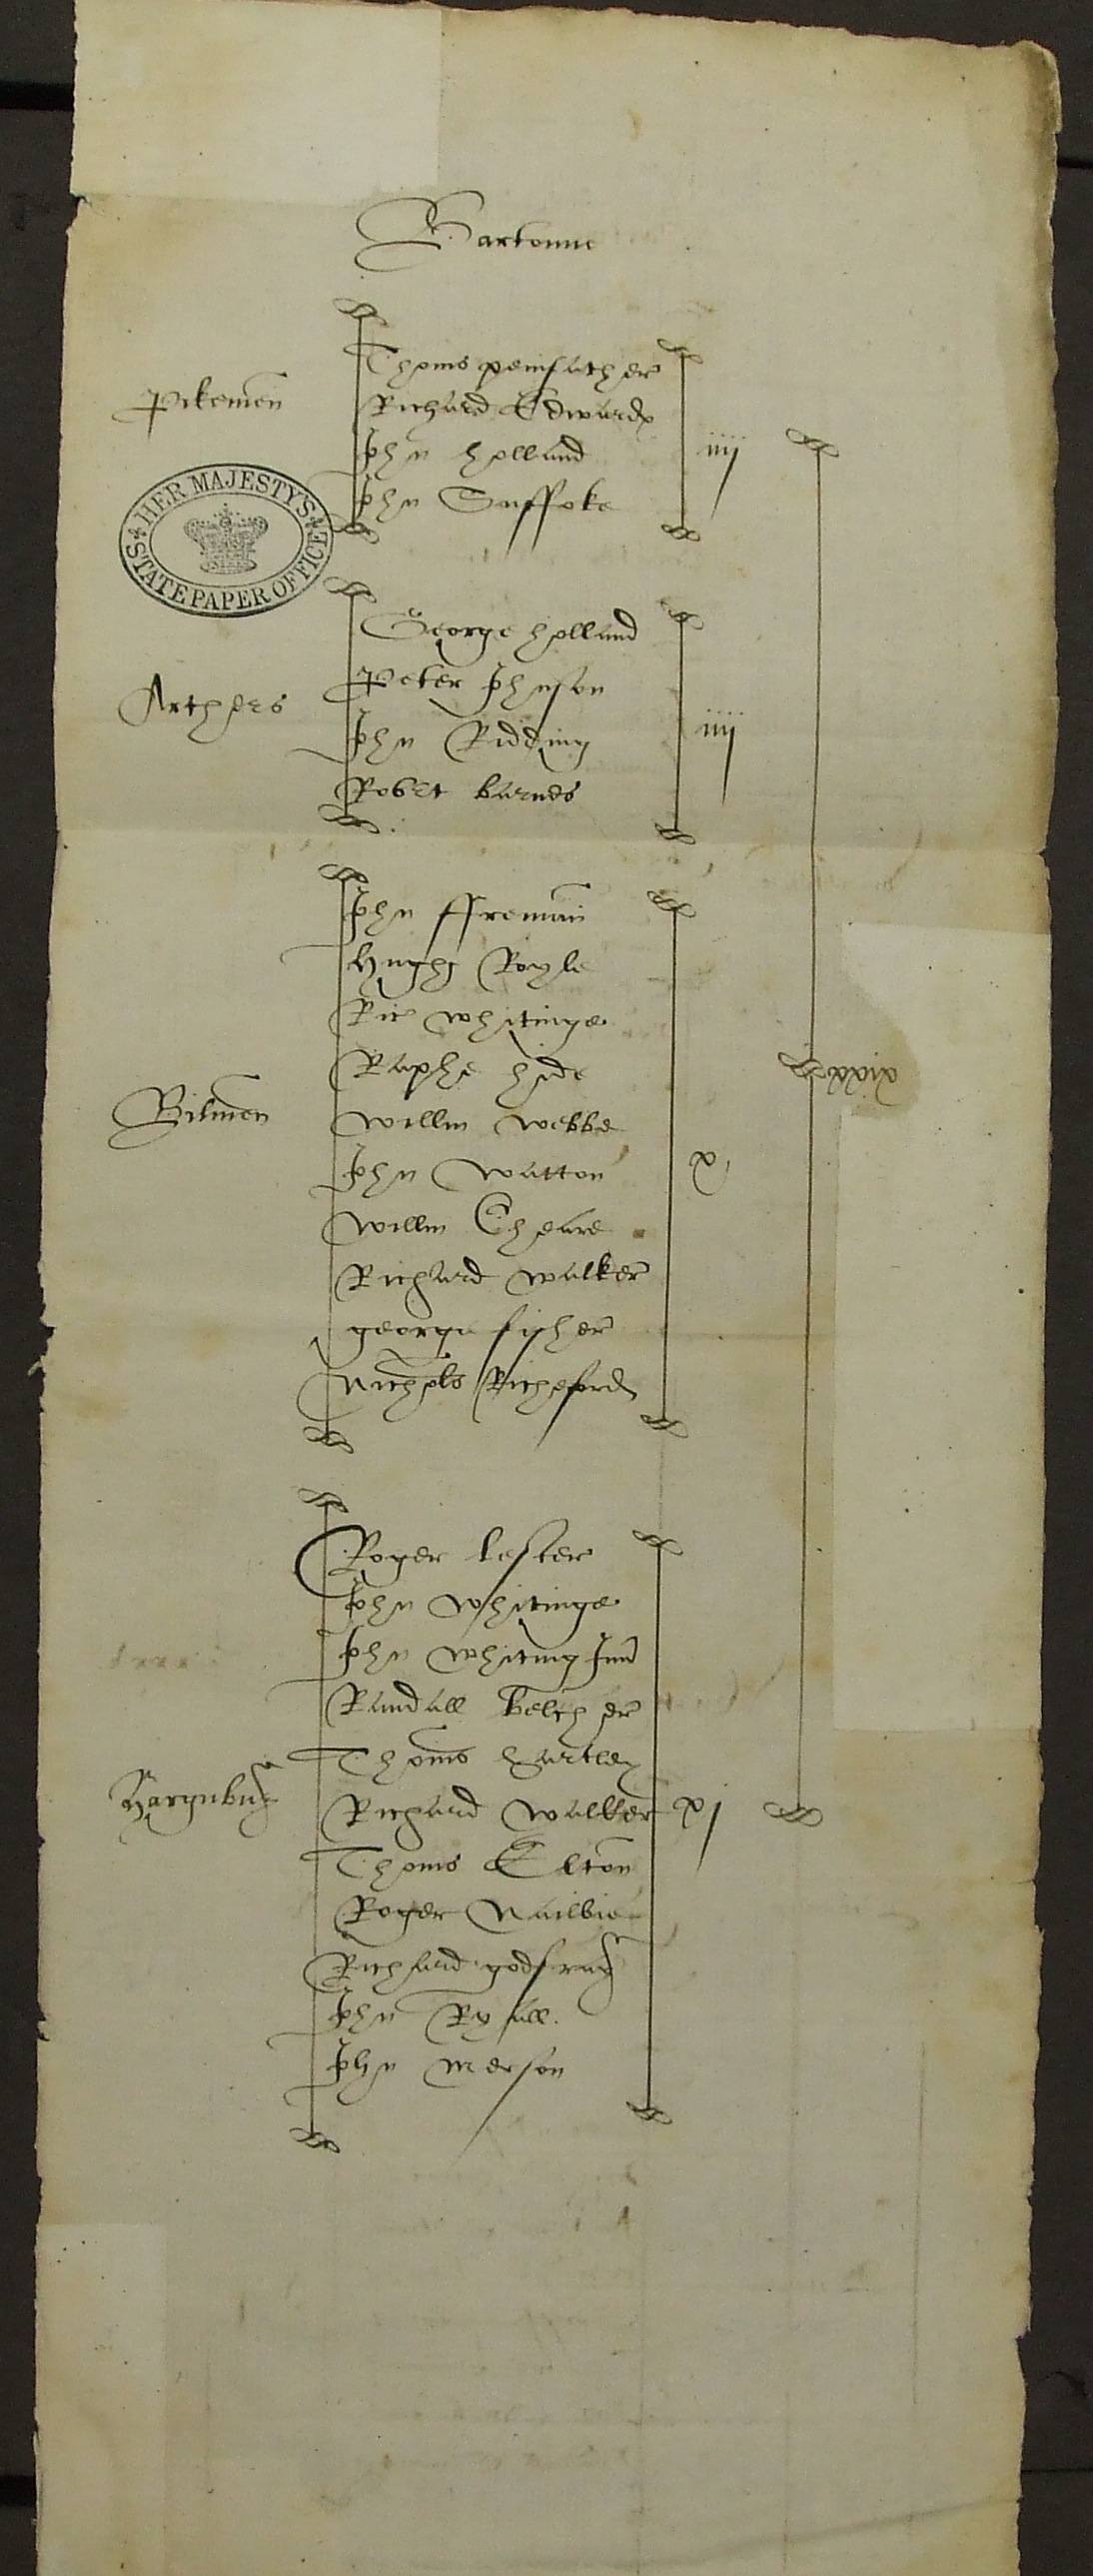 Bartonne
Pikemen
Thoms penfather
Richard Edwards
Jhn Holland
Jhn Suffoke
iiij
HER MAJESTY'S
STATE PAPER OFFICE
Archers
George Holland
Peter Jhnson
Jhn Ridding
Robrt barnes
iiij
Bilmen
Jhn ffreman
Hughg Royle
Ric Whitinge
Raphe Hide
Willm Webbe
Jhn Watton
Willm Cheare
Richard Walker
george fisher
Nichols Richeford
x
xxix
Harqubuz
Roger Lester
Jhn Whitinge
Jhn Whiting Jun
Randall Belcher
Thoms Hartley
Richard Walker
Thoms Elton
Roger Nailbie
Richard godfray
Jhn Ryall
Jhn Merson
xj